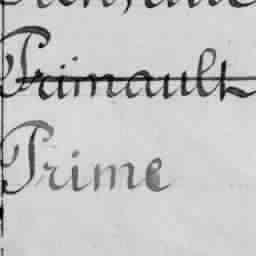 Primault
Prime